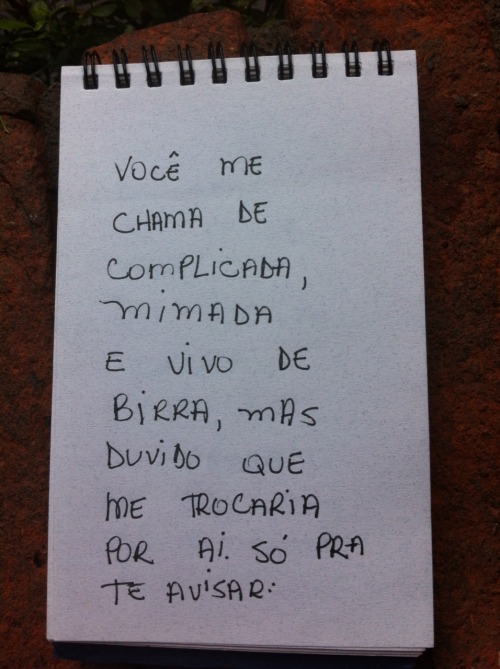 VOCÊ ME
CHAMA DE
COMPLICADA,
MIMADA
E VIVO DE
BIRRA, MAS
DUVIDO QUE
ME TROCARIA
POR AI. SÓ PRA
TE AVISAR: